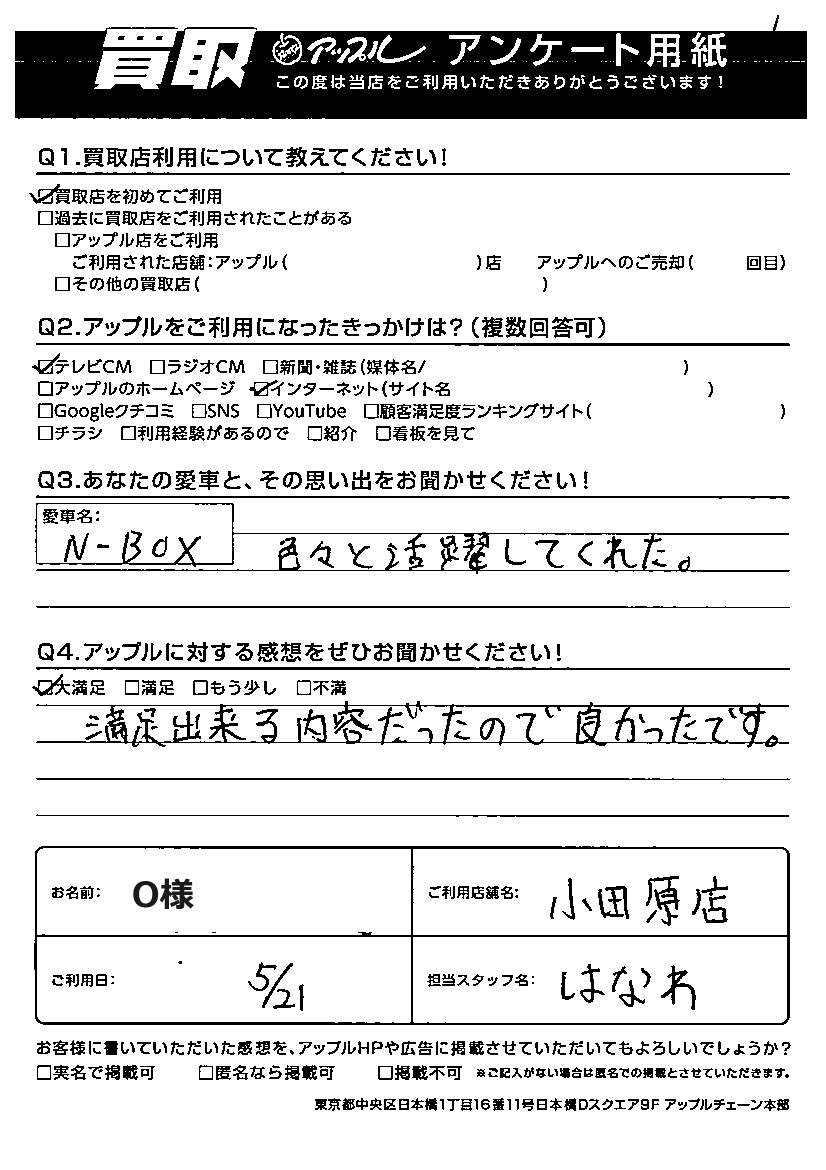 買取 アップル アンケート用紙
この度は当店をご利用いただきありがとうございます！
Q1.買取店利用について教えてください！
☑買取店を初めてご利用
□過去に買取店をご利用されたことがある
□アップル店をご利用
ご利用された店舗：アップル（　）店　アップルへのご売却（　回目）
□その他の買取店（　）
Q2.アップルをご利用になったきっかけは？（複数回答可）
☑テレビCM　□ラジオCM　□新聞・雑誌（媒体名/　）
□アップルのホームページ　☑インターネット（サイト名　）
□Googleクチコミ　□SNS　□YouTube　□顧客満足度ランキングサイト（　）
□チラシ　□利用経験があるので　□紹介　□看板を見て
Q3.あなたの愛車と、その思い出をお聞かせください！
愛車名：
N-BOX　色々と活躍してくれた。
Q4.アップルに対する感想をぜひお聞かせください！
☑大満足　□満足　□もう少し　□不満
満足出来る内容だったので良かったです。
お名前：O様　ご利用店舗名：小田原店
ご利用日：5/21　担当スタッフ名：はなわ
お客様に書いていただいた感想を、アップルHPや広告に掲載させていただいてもよろしいでしょうか？
□実名で掲載可　□匿名なら掲載可　□掲載不可　※ご記入がない場合は匿名での掲載とさせていただきます。
東京都中央区日本橋1丁目16番11号日本橋Dスクエア9F アップルチェーン本部